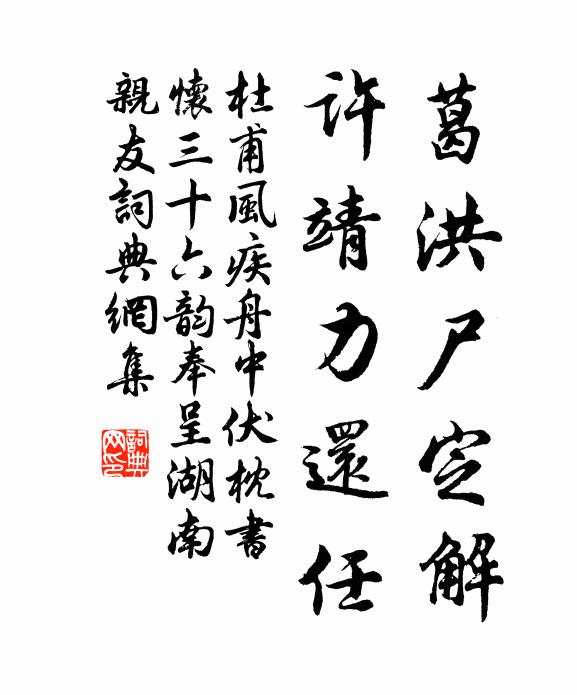 葛洪尸定解
許靖力還任
杜甫風疾舟中伏枕書
懷三十六韵奉呈湖南
親友詞典網集
詞典
网印